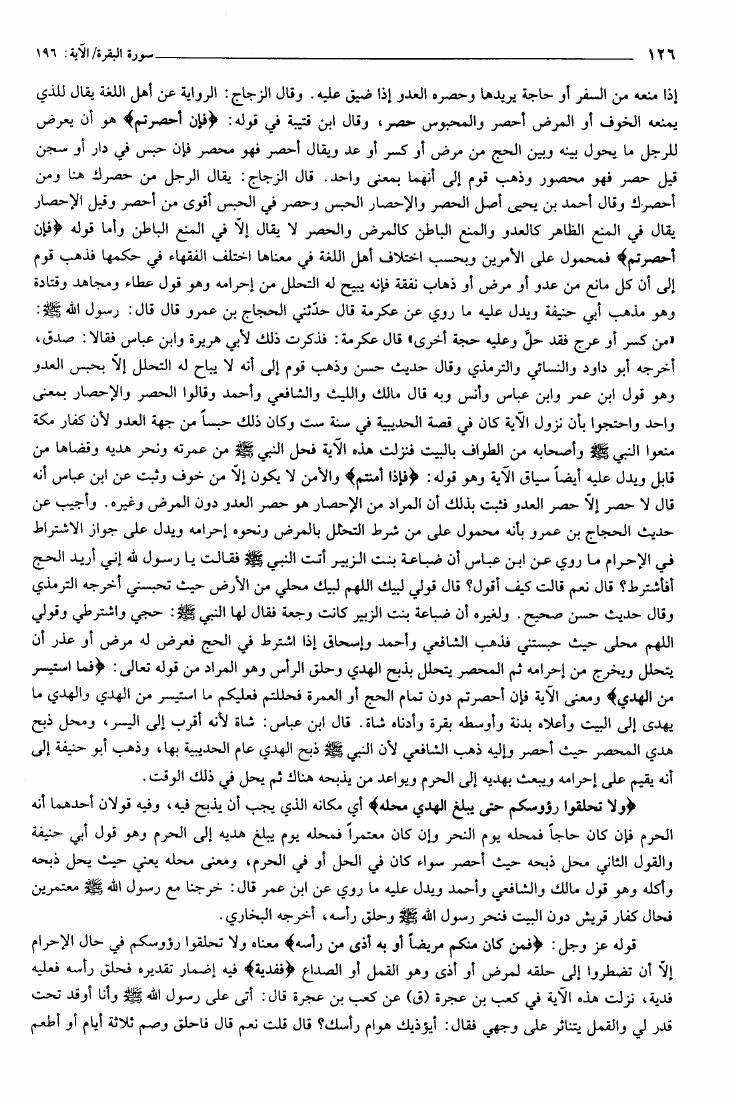 ١٢٦ سورة البقرة/ الآية: ١٩٦
إذا منعه من السفر أو حاجة يريدها وحصره العدو إذا ضيق عليه. وقال الزجاج: الرواية عن أهل اللغة يقال للذي
يمنعه الخوف أو المرض أحصر والمحبوس حصر، وقال ابن قتيبة في قوله: ﴿فإن أحصرتم﴾ هو أن يعرض
للرجل ما يحول بينه وبين الحج من مرض أو كسر أو عد ويقال أحصر فهو محصر فإن حبس في دار أو سجن
قيل حصر فهو محصور وذهب قوم إلى أنهما بمعنى واحد. قال الزجاج: يقال الرجل من حصرك هنا ومن
أحصرك وقال أحمد بن يحيى أصل الحصر والإحصار الحبس وحصر في الحبس أقوى من أحصر وقيل الإحصار
يقال في المنع الظاهر كالعدو والمنع الباطن كالمرض والحصر لا يقال إلّا في المنع الباطن وأما قوله ﴿فإن
أحصرتم﴾ فمحمول على الأمرين وبحسب اختلاف أهل اللغة في معناها اختلف الفقهاء في حكمها فذهب قوم
إلى أن كل مانع من عدو أو مرض أو ذهاب نفقة فإنه يبيح له التحلل من إحرامه وهو قول عطاء ومجاهد وقتادة
وهو مذهب أبي حنيفة ويدل عليه ما روي عن عكرمة قال حدّثني الحجاج بن عمرو قال قال: رسول الله ﷺ:
«من كسر أو عرج فقد حلَّ وعليه حجة أخرى» قال عكرمة: فذكرت ذلك لأبي هريرة وابن عباس فقالا: صدق،
أخرجه أبو داود والنسائي والترمذي وقال حديث حسن وذهب قوم إلى أنه لا يباح له التحلل إلّا بحبس العدو
وهو قول ابن عمر وابن عباس وأنس وبه قال مالك والليث والشافعي وأحمد وقالوا الحصر والإحصار بمعنى
واحد واحتجوا بأن نزول الآية كان في قصة الحديبية في سنة ست وكان ذلك حبساً من جهة العدو لأن كفار مكة
منعوا النبي ﷺ وأصحابه من الطواف بالبيت فنزلت هذه الآية فحل النبي ﷺ من عمرته ونحر هديه وقضاها من
قابل ويدل عليه أيضاً سياق الآية وهو قوله: ﴿فإذا أمنتم﴾ والأمن لا يكون إلّا من خوف وثبت عن ابن عباس أنه
قال لا حصر إلّا حصر العدو فثبت بذلك أن المراد من الإحصار هو حصر العدو دون المرض وغيره. وأجيب عن
حديث الحجاج بن عمرو بأنه محمول على من شرط التحلل بالمرض ونحوه إحرامه ويدل على جواز الاشتراط
في الإحرام ما روي عن ابن عباس أن ضباعة بنت الزبير أتت النبي ﷺ فقالت يا رسول لله إني أريد الحج
أفأشترط؟ قال نعم قالت كيف أقول؟ قال قولي لبيك اللهم لبيك محلي من الأرض حيث تحبسني أخرجه الترمذي
وقال حديث حسن صحيح. ولغيره أن ضباعة بنت الزبير كانت وجعة فقال لها النبي ﷺ: حجي واشترطي وقولي
اللهم محلى حيث حبستني فذهب الشافعي وأحمد وإسحاق إذا اشترط في الحج فعرض له مرض أو عذر أن
يتحلل ويخرج من إحرامه ثم المحصر يتحلل بذبح الهدي وحلق الرأس وهو المراد من قوله تعالى: ﴿فما استيسر
من الهدي﴾ ومعنى الآية فإن أحصرتم دون تمام الحج أو العمرة فحللتم فعليكم ما استيسر من الهدي والهدي ما
يهدى إلى البيت وأعلاه بدنة وأوسطه بقرة وأدناه شاة. قال ابن عباس: شاة لأنه أقرب إلى اليسر، ومحل ذبح
هدي المحصر حيث أحصر وإليه ذهب الشافعي لأن النبي ﷺ ذبح الهدي عام الحديبية بها، وذهب أبو حنيفة إلى
أنه يقيم على إحرامه ويبعث بهديه إلى الحرم ويواعد من يذبحه هناك ثم يحل في ذلك الوقت.
﴿ولا تحلقوا رؤوسكم حتى يبلغ الهدي محله﴾ أي مكانه الذي يجب أن يذبح فيه، وفيه قولان أحدهما أنه
الحرم فإن كان حاجاً فمحله يوم النحر وإن كان معتمراً فمحله يوم يبلغ هديه إلى الحرم وهو قول أبي حنيفة
والقول الثاني محل ذبحه حيث أحصر سواء كان في الحل أو في الحرم، ومعنى محله يعني حيث يحل ذبحه
وأكله وهو قول مالك والشافعي وأحمد ويدل عليه ما روي عن ابن عمر قال: خرجنا مع رسول الله ﷺ معتمرين
فحال كفار قريش دون البيت فنحر رسول الله ﷺ وحلق رأسه، أخرجه البخاري.
قوله عز وجل: ﴿فمن كان منكم مريضاً أو به أذى من رأسه﴾ معناه ولا تحلقوا رؤوسكم في حال الإحرام
إلّا أن تضطروا إلى حلقه لمرض أو أذى وهو القمل أو الصداع ﴿ففدية﴾ فيه إضمار تقديره فحلق رأسه فعليه
فدية، نزلت هذه الآية في كعب بن عجرة (ق) عن كعب بن عجرة قال: أتى على رسول الله ﷺ وأنا أوقد تحت
قدر لي والقمل يتناثر على وجهي فقال: أيؤذيك هوام رأسك؟ قال قلت نعم قال فاحلق وصم ثلاثة أيام أو أطعم